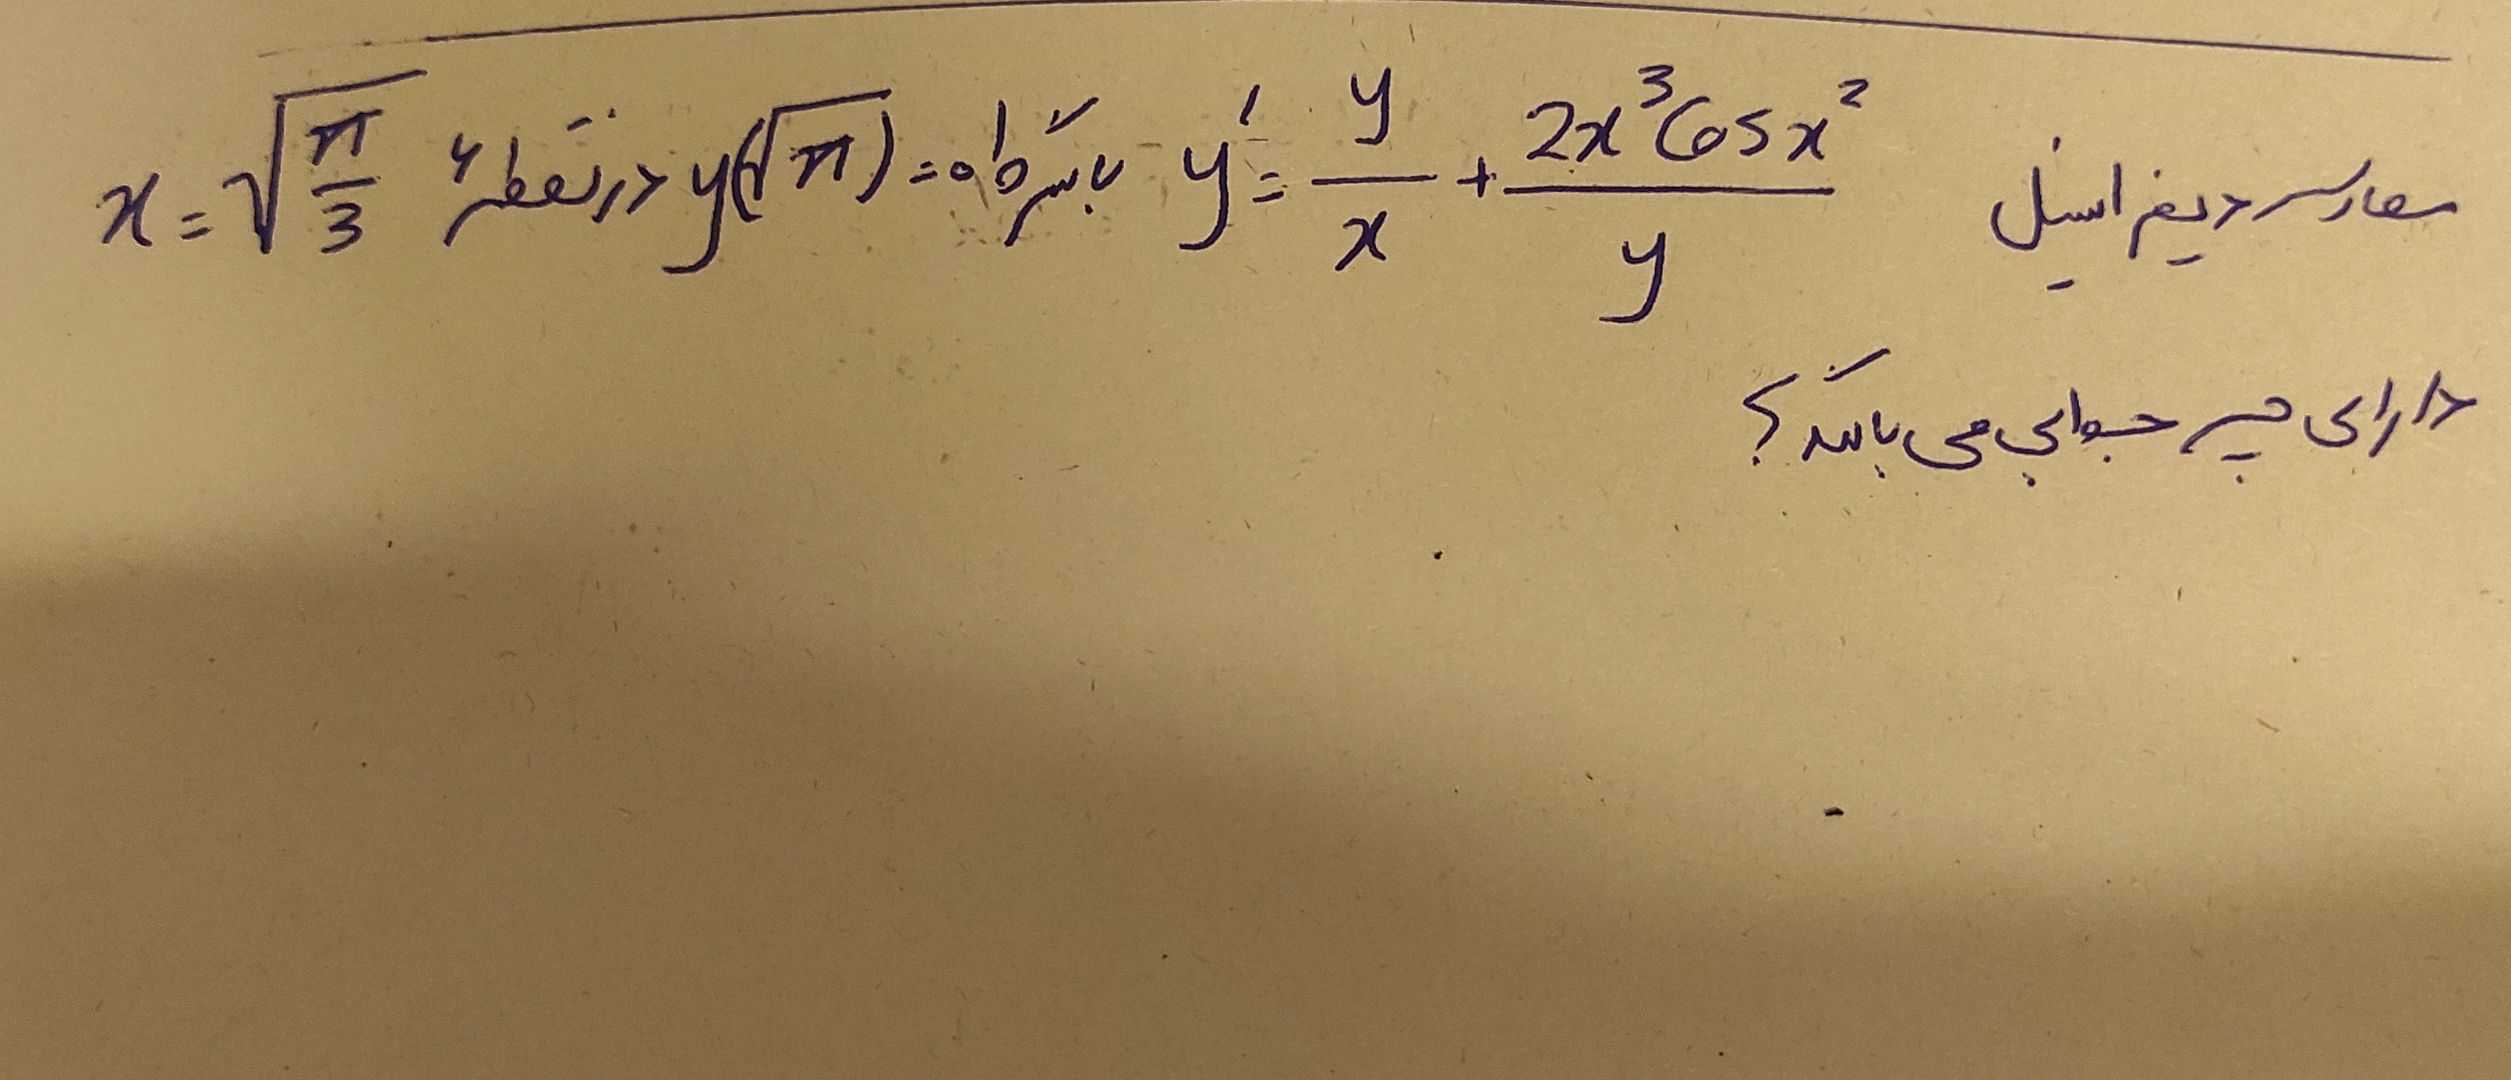 معادله دیفرانسیل y' = y/x + 2x³Cosx²/y با شرط y(√π) = 0 در نقطه‌ی x = √(π/3)
دارای چه جوابی می باشد؟